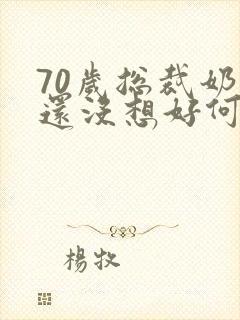 70歲總裁奶
還沒想好何
楊牧